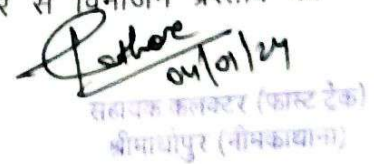 से विभाजन
Rathore
04/01/24
सहायक कलक्टर (फास्ट ट्रेक)
श्रीमाधोपुर (नीमकाथाना)